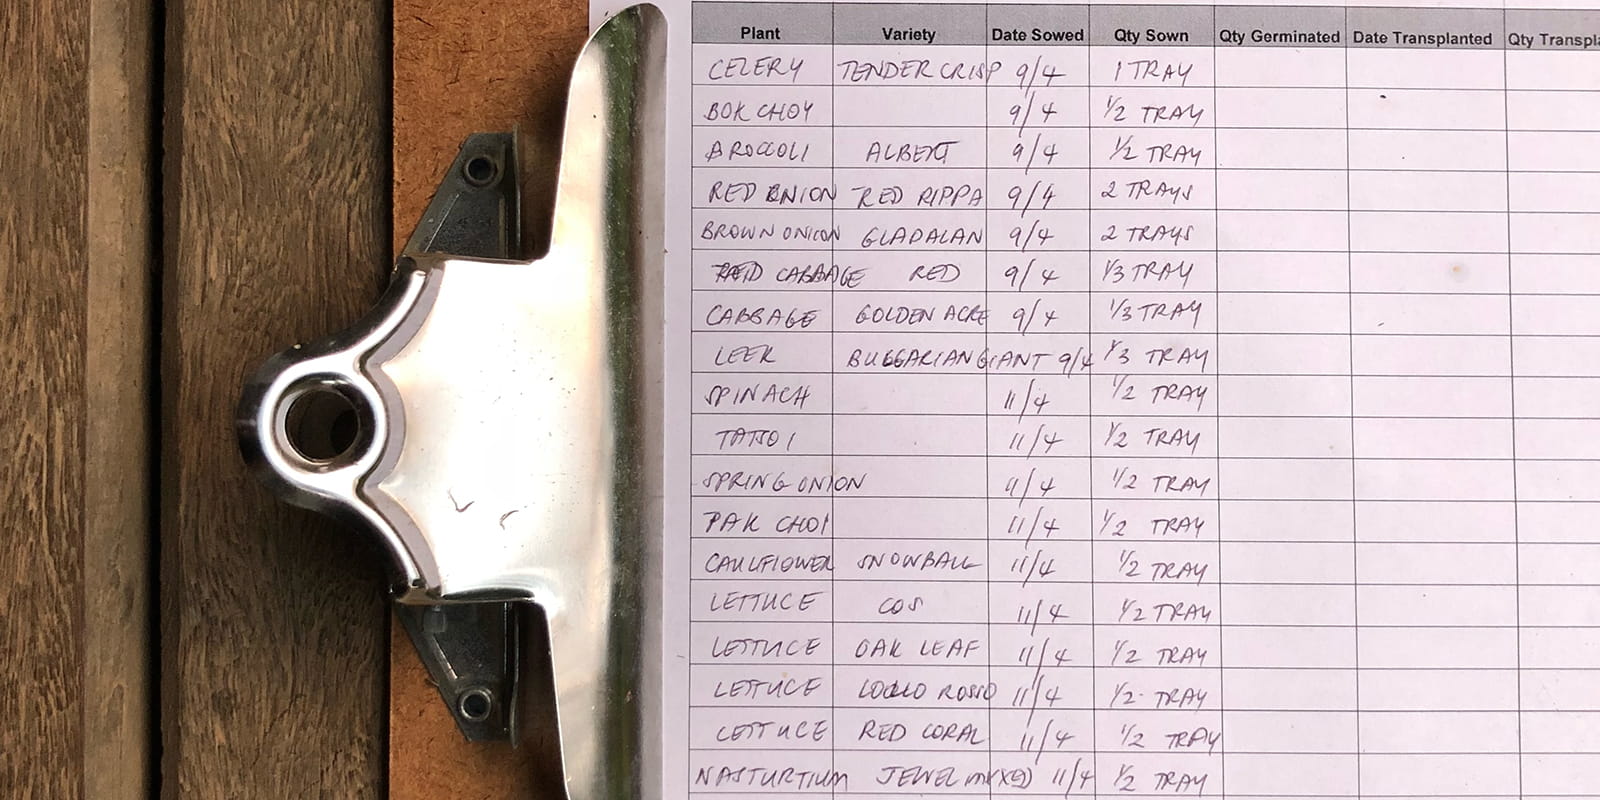 Plant Variety Date Sowed Qty Sown Qty Germinated Date Transplanted Qty Transpla
CELERY TENDER CRISP 9/4 1 TRAY
BOK CHOY 9/4 1/2 TRAY
BROCCOLI ALBERT 9/4 1/2 TRAY
RED ONION RED RIPPA 9/4 2 TRAYS
BROWN ONION GLADALAN 9/4 2 TRAYS
RED CABBAGE RED 9/4 1/3 TRAY
CABBAGE GOLDEN ACRE 9/4 1/3 TRAY
LEEK BULGARIAN GIANT 9/4 1/3 TRAY
SPINACH 11/4 1/2 TRAY
TATSOI 11/4 1/2 TRAY
SPRING ONION 9/4 1/2 TRAY
PAK CHOI 11/4 1/2 TRAY
CAULIFLOWER SNOWBALL 11/4 1/2 TRAY
LETTUCE COS 11/4 1/2 TRAY
LETTUCE OAK LEAF 11/4 1/2 TRAY
LETTUCE LOLLO ROSSO 11/4 1/2 TRAY
LETTUCE RED CORAL 11/4 1/2 TRAY
NASTURTIUM JEWEL MIXED 11/4 1/2 TRAY